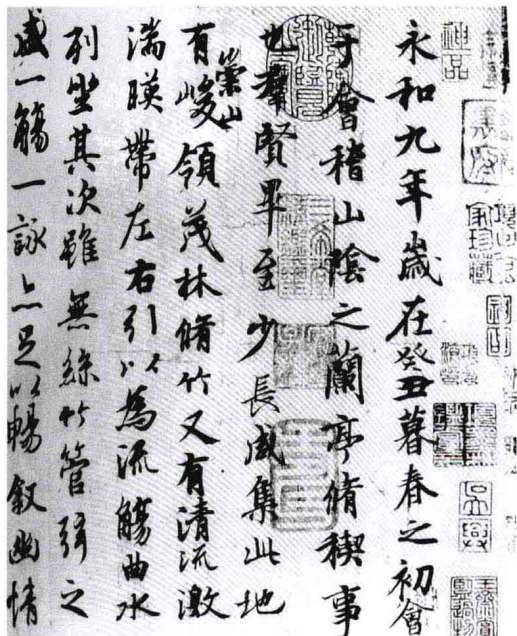 神品
永和九年歲在癸丑暮春之初會
于會稽山陰之蘭亭脩稧事
也羣賢畢至少長咸集此地
有崇山峻領茂林脩竹又有清流激
湍暎帶左右引以為流觴曲水
列坐其次雖無絲竹管弦之
盛一觴一詠亦足以暢敘幽情